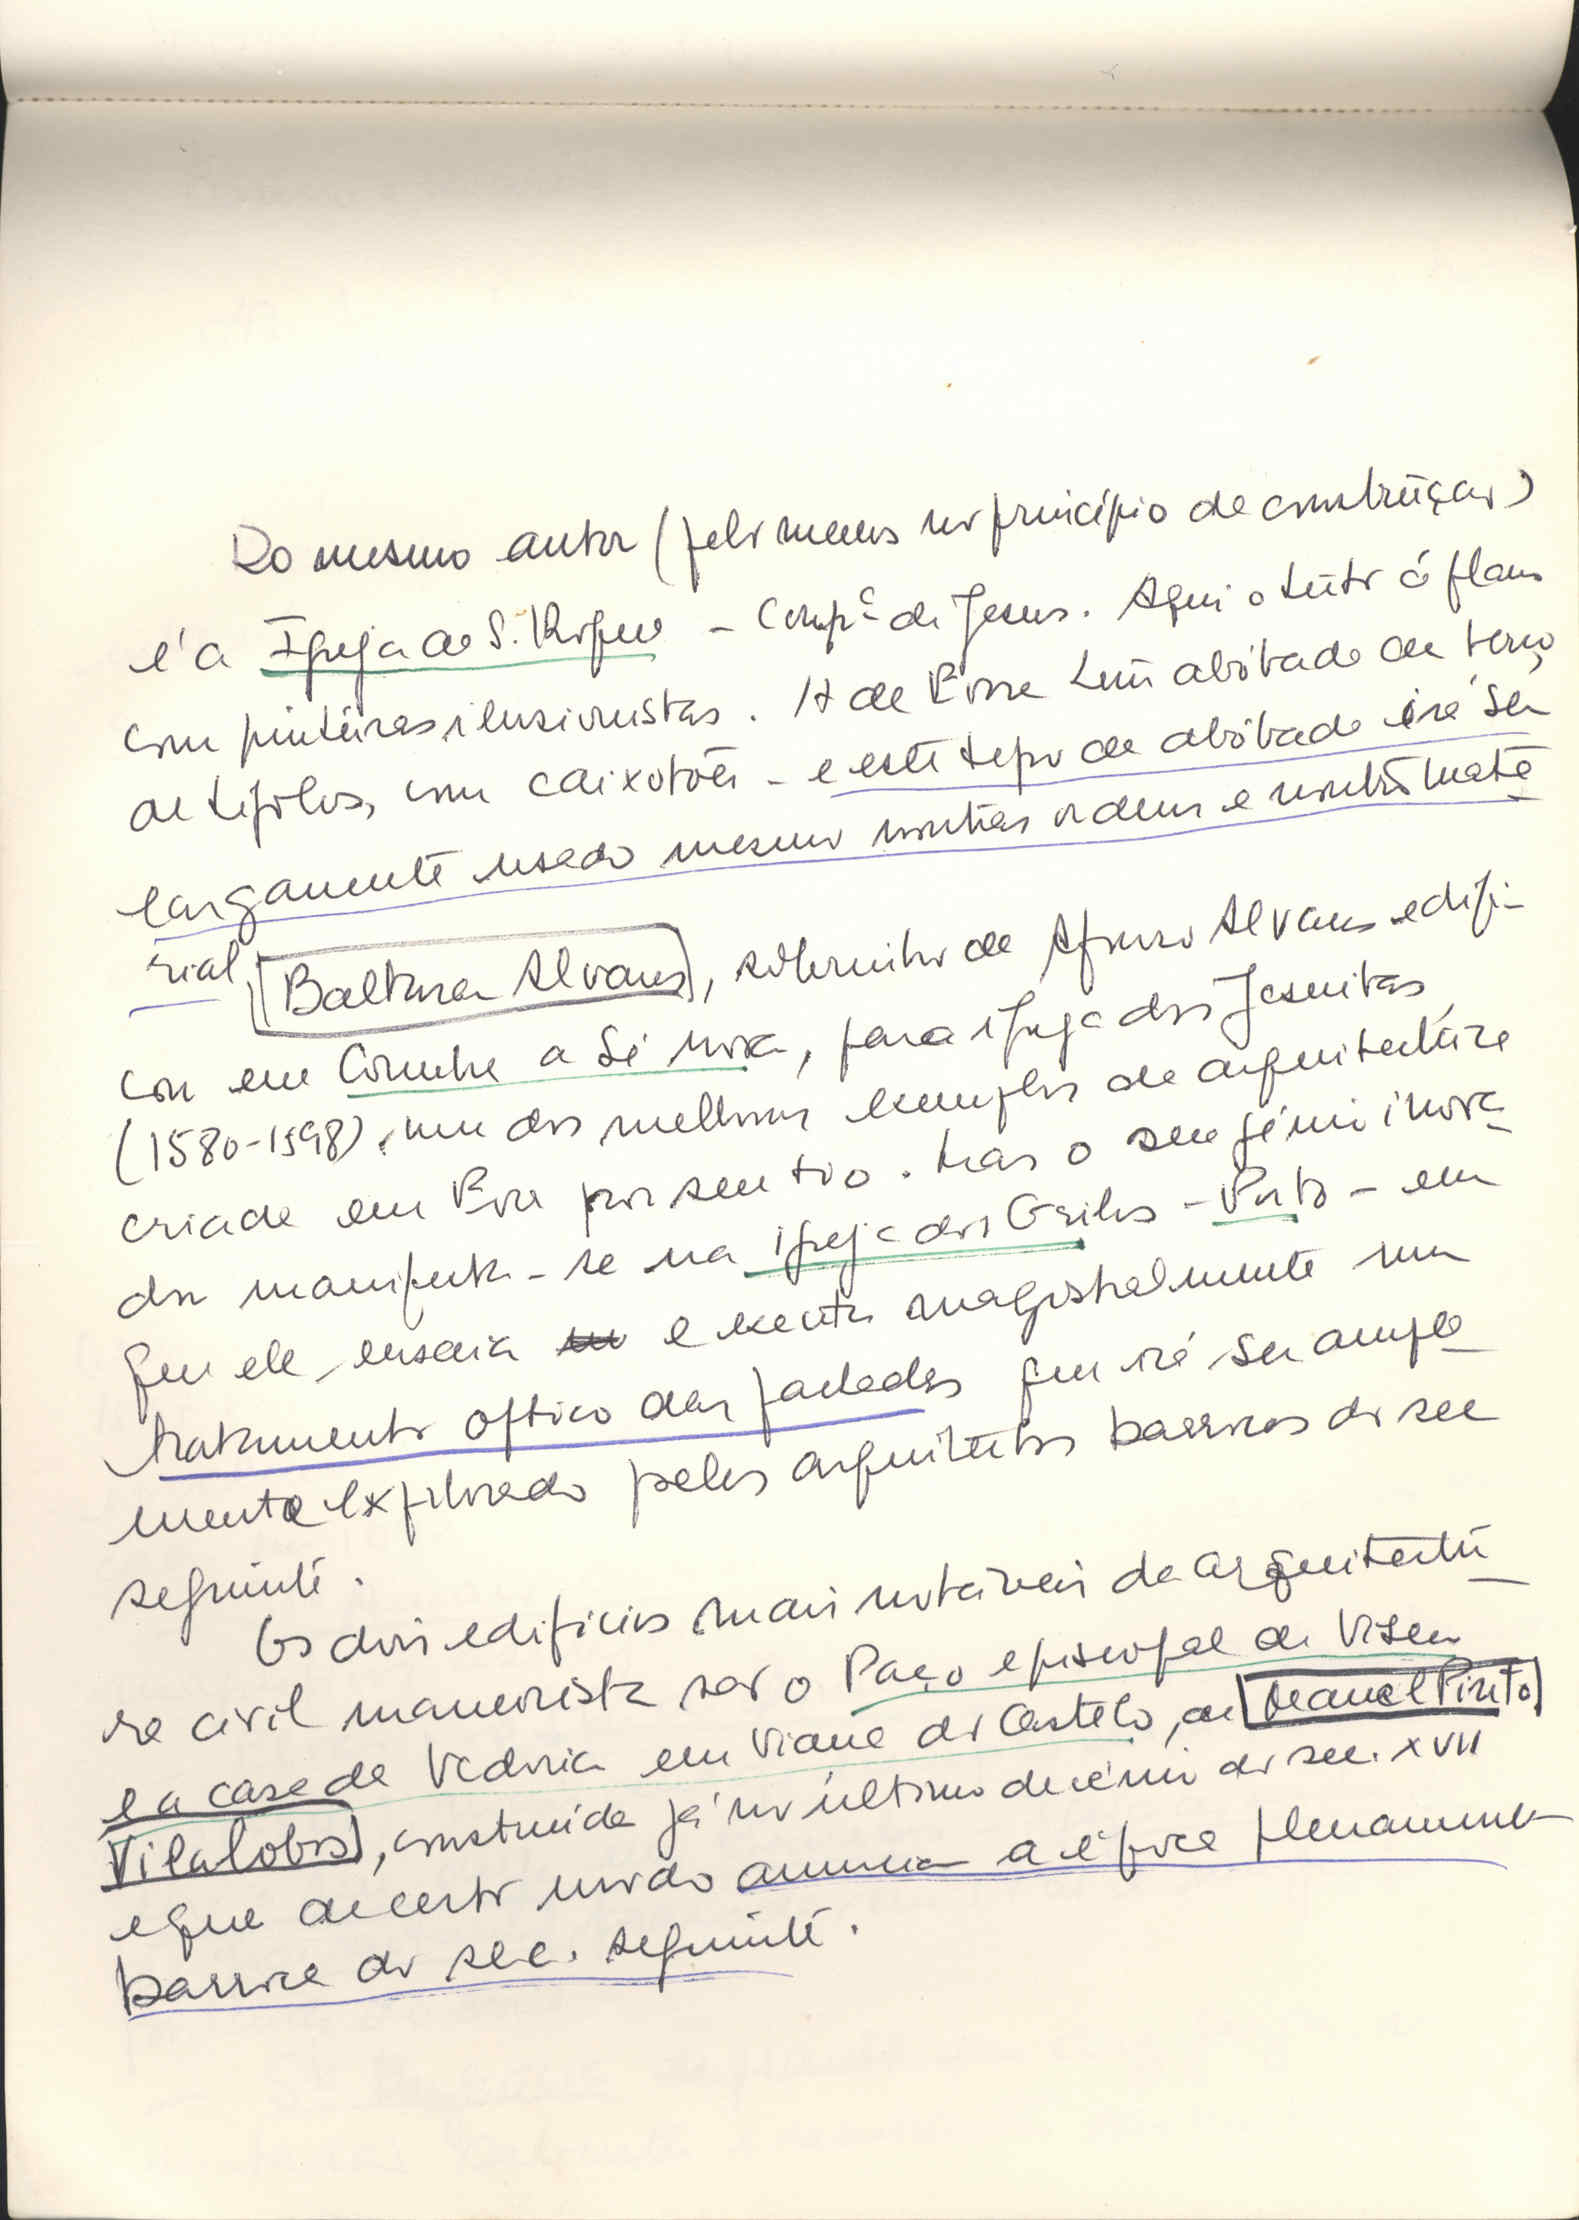 Do mesmo autor (pelo menos no princípio da construção)
é a Igreja de S. Roque - Compª de Jesus. Aqui o tecto é plano
com pinturas ilusionistas. A de Évora tem abóbada de berço
de tijolos, com caixotões - e este tipo de abóbada irá ser
largamente usado mesmo noutras ordens e noutro mate-
rial, [Baltasar Alvares], sobrinho de Afonso Alvares edifi-
cou em Coimbra a Sé nova, para igreja dos Jesuitas
(1580-1598), um dos melhores exemplos da arquitectura
criada em Évora por seu tio. Mas o seu génio inova-
dor manifesta-se na igreja dos Grilos - Porto - em
que ele ensaia e executa magistralmente um
tratamento optico das fachadas que irá ser ampla-
mente explorado pelos arquitectos barrocos do sec
seguinte.
Os dois edificios mais notáveis da arquitectu-
ra civil maneirista são o Paço episcopal de Viseu
e a casa da Vedoria em Viana do Castelo, de [Manuel Pinto
Vilalobos], construída já no último decénio do sec. XVII
e que de certo modo anuncia a época plenamente
barroca do sec. seguinte.